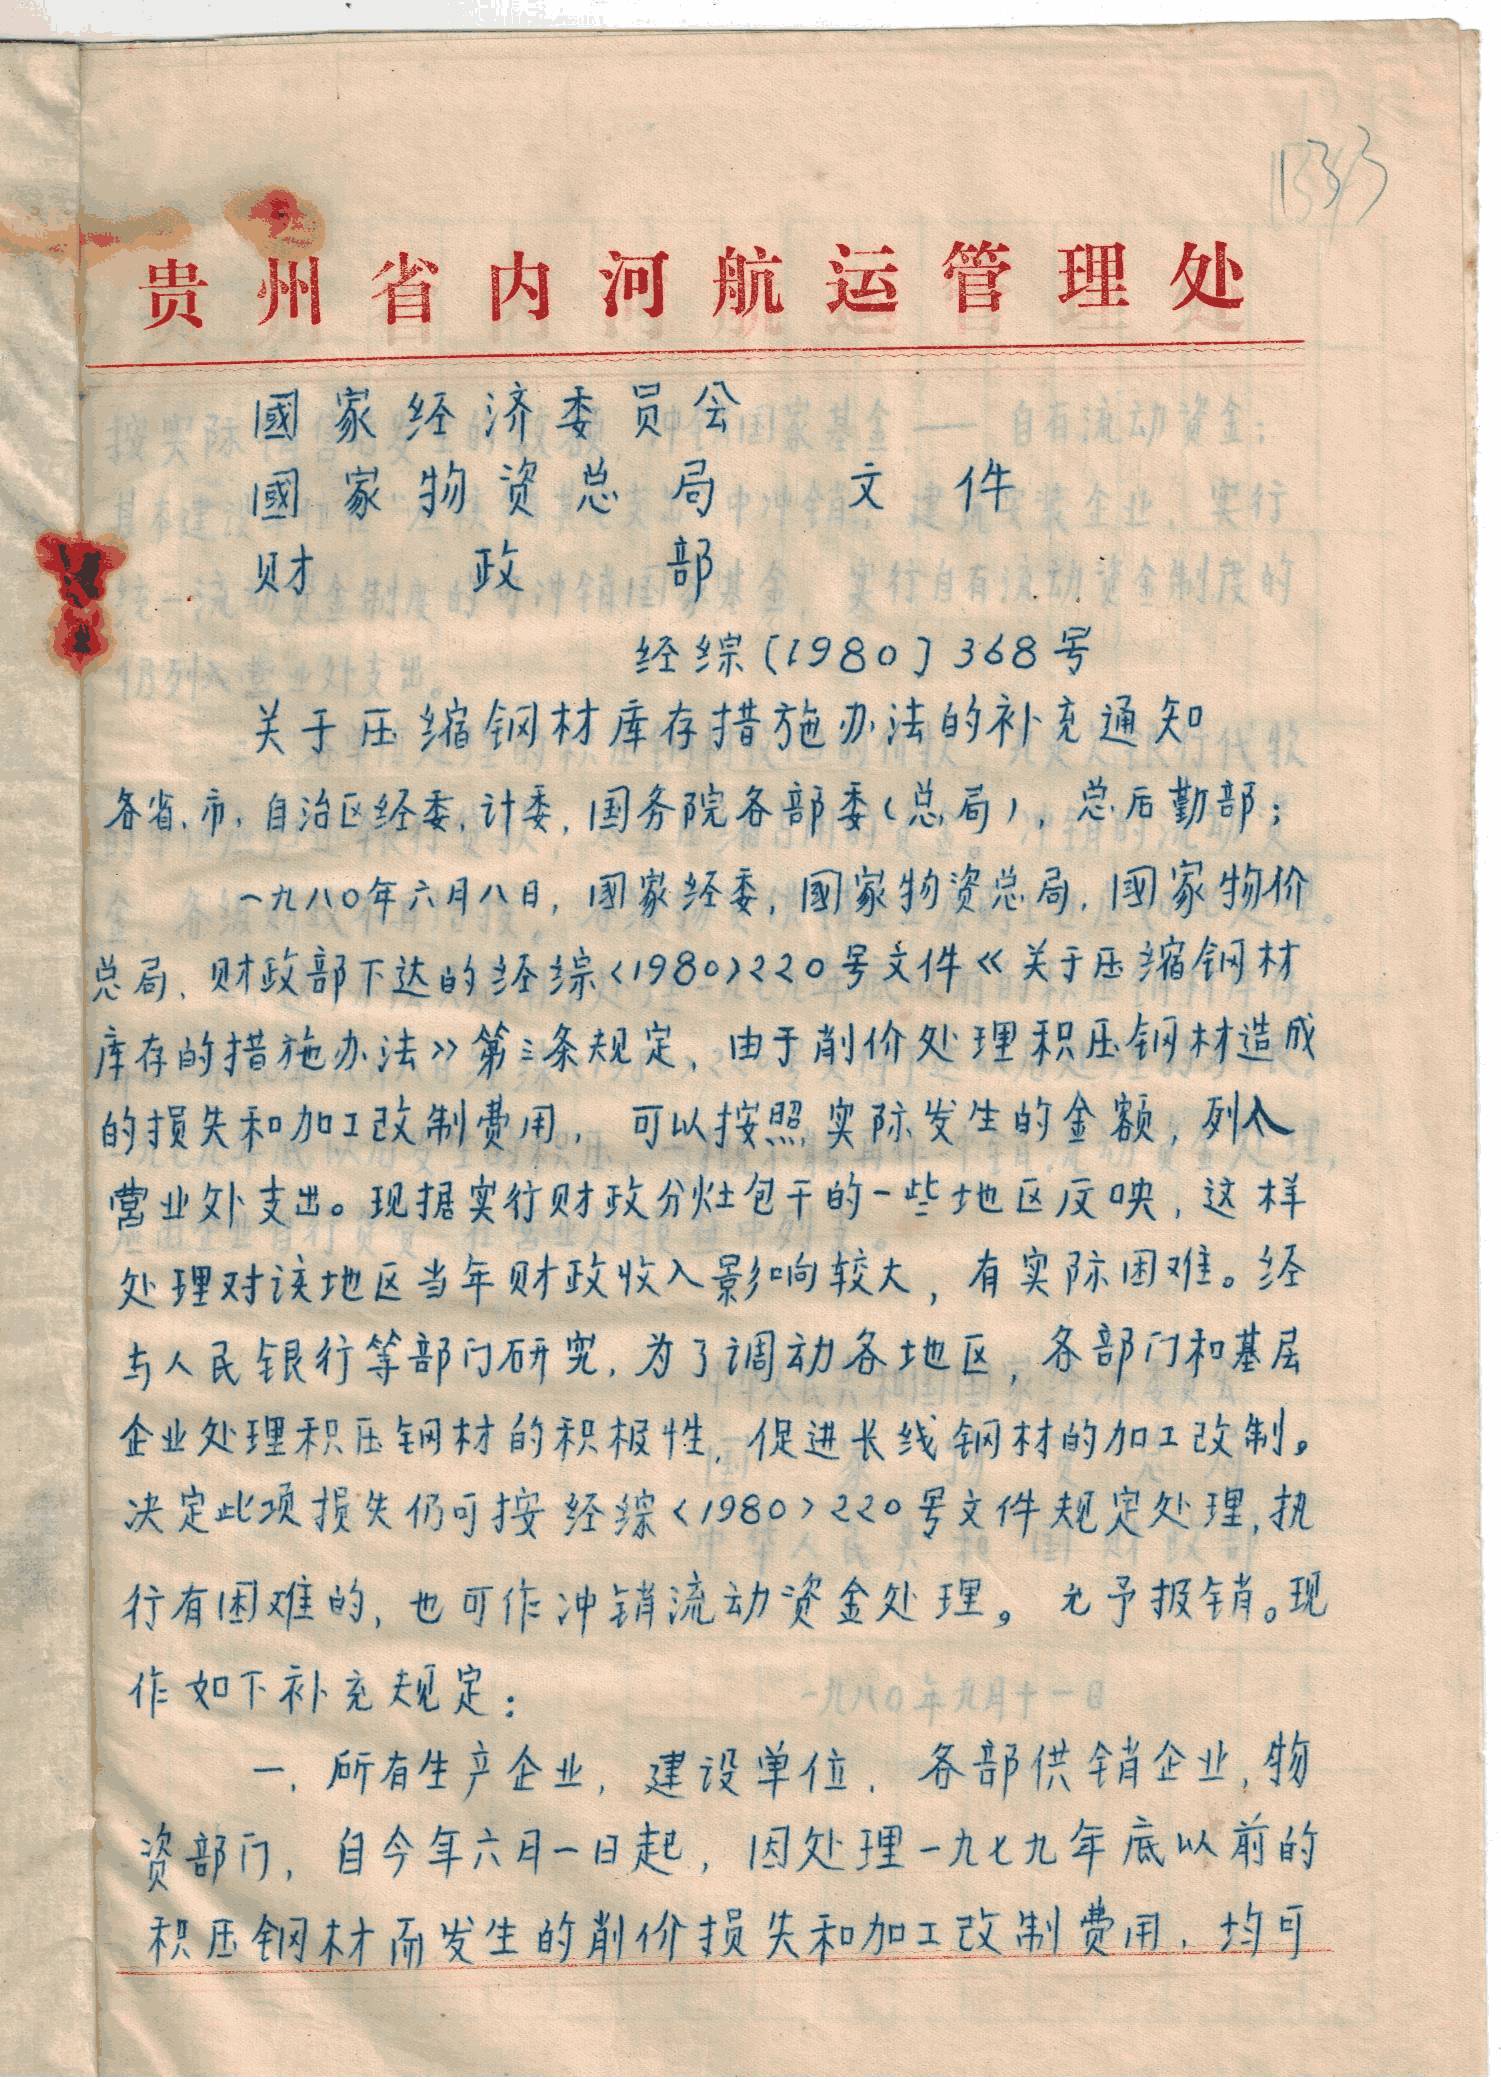 133
贵州省内河航运管理处
國家经济委员会
國家物资总局 文件
财政部
经综〔1980〕368号
关于压缩钢材库存措施办法的补充通知
各省、市、自治区经委,计委,国务院各部委(总局),总后勤部;
一九八〇年六月八日,国家经委,國家物资总局,國家物价
总局、财政部下达的经综<1980>220号文件《关于压缩钢材
库存的措施办法》第三条规定,由于削价处理积压钢材造成
的损失和加工改制费用,可以按照实际发生的金额,列入
营业外支出。现据实行财政分灶包干的一些地区反映,这样
处理对该地区当年财政收入影响较大,有实际困难。经
与人民银行等部门研究,为了调动各地区,各部门和基层
企业处理积压钢材的积极性,促进长线钢材的加工改制。
决定此项损失仍可按经综<1980>220号文件规定处理,执
行有困难的,也可作冲销流动资金处理。允予报销。现
作如下补充规定:
一、所有生产企业,建设单位、各部供销企业,物
资部门,自今年六月一日起,因处理一九七九年底以前的
积压钢材而发生的削价损失和加工改制费用,均可